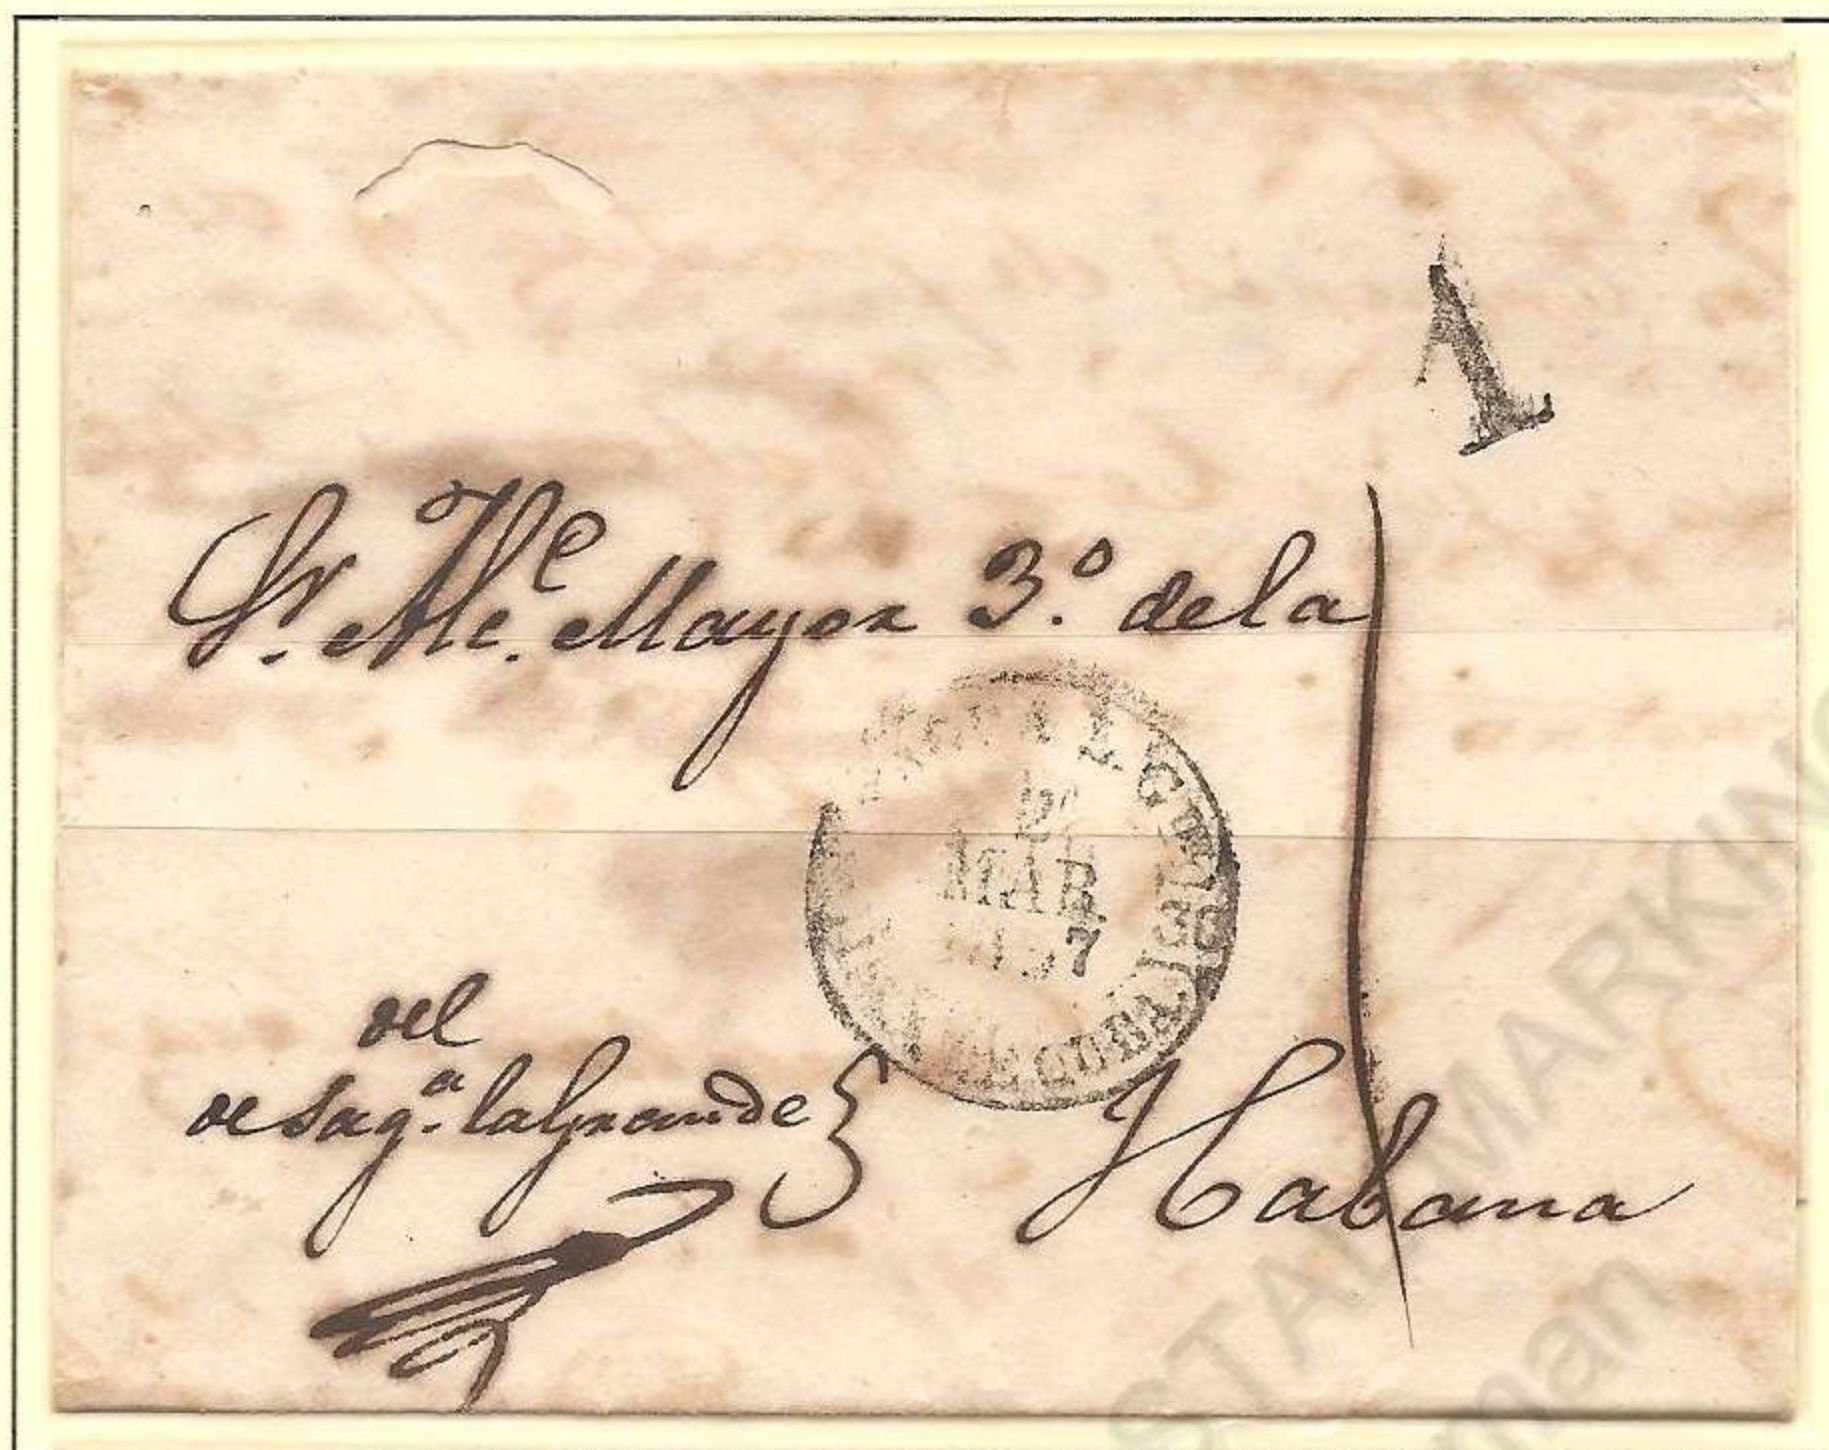 1
Sr. Alc.e Mayor 3.º de la
SAGUA LA GRANDE
MAR.
ISLA DE CUBA.
del
de Sag.a la Grande
Habana
STAL MARKING
man